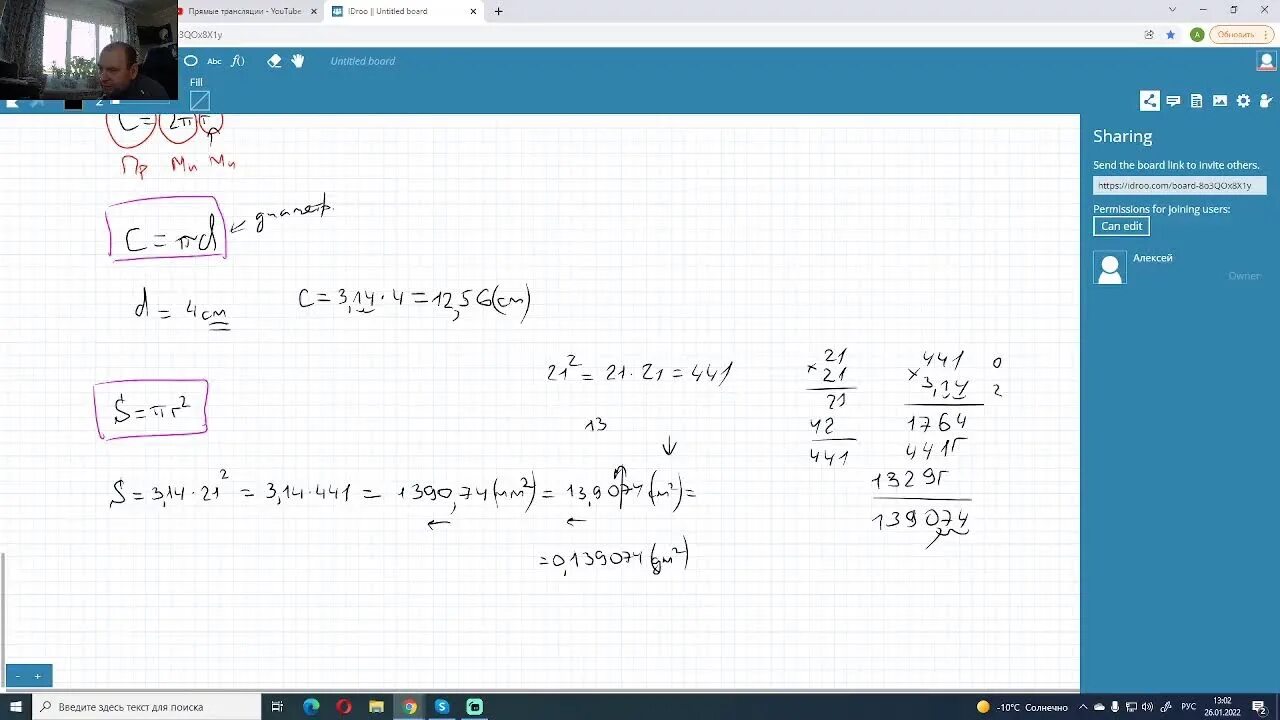 Прямые трансляции - YouTube
IDroo || Untitled board
3QOx8X1y
Обновить
A
Abc f() Untitled board
Fill
2
C = 2π r
Пр Мн Мн
C = πd ← диаметр.
d = 4 см
C = 3,14 · 4 = 12,56 (см)
S = πr²
21² = 21 · 21 = 441
13
S = 3,14 · 21² = 3,14 · 441 = 1390,74 (мм²) = 13,9074 (см²) =
= 0,139074 (дм²)
21
× 21
21
42
441
441 0
× 3,14 2
1764
441
1323
139074
Sharing
Send the board link to invite others.
https://idroo.com/board-8o3QOx8X1y
Permissions for joining users:
Can edit
Алексей
Owner
- +
Введите здесь текст для поиска
-10°C Солнечно
РУС
13:02
26.01.2022
2